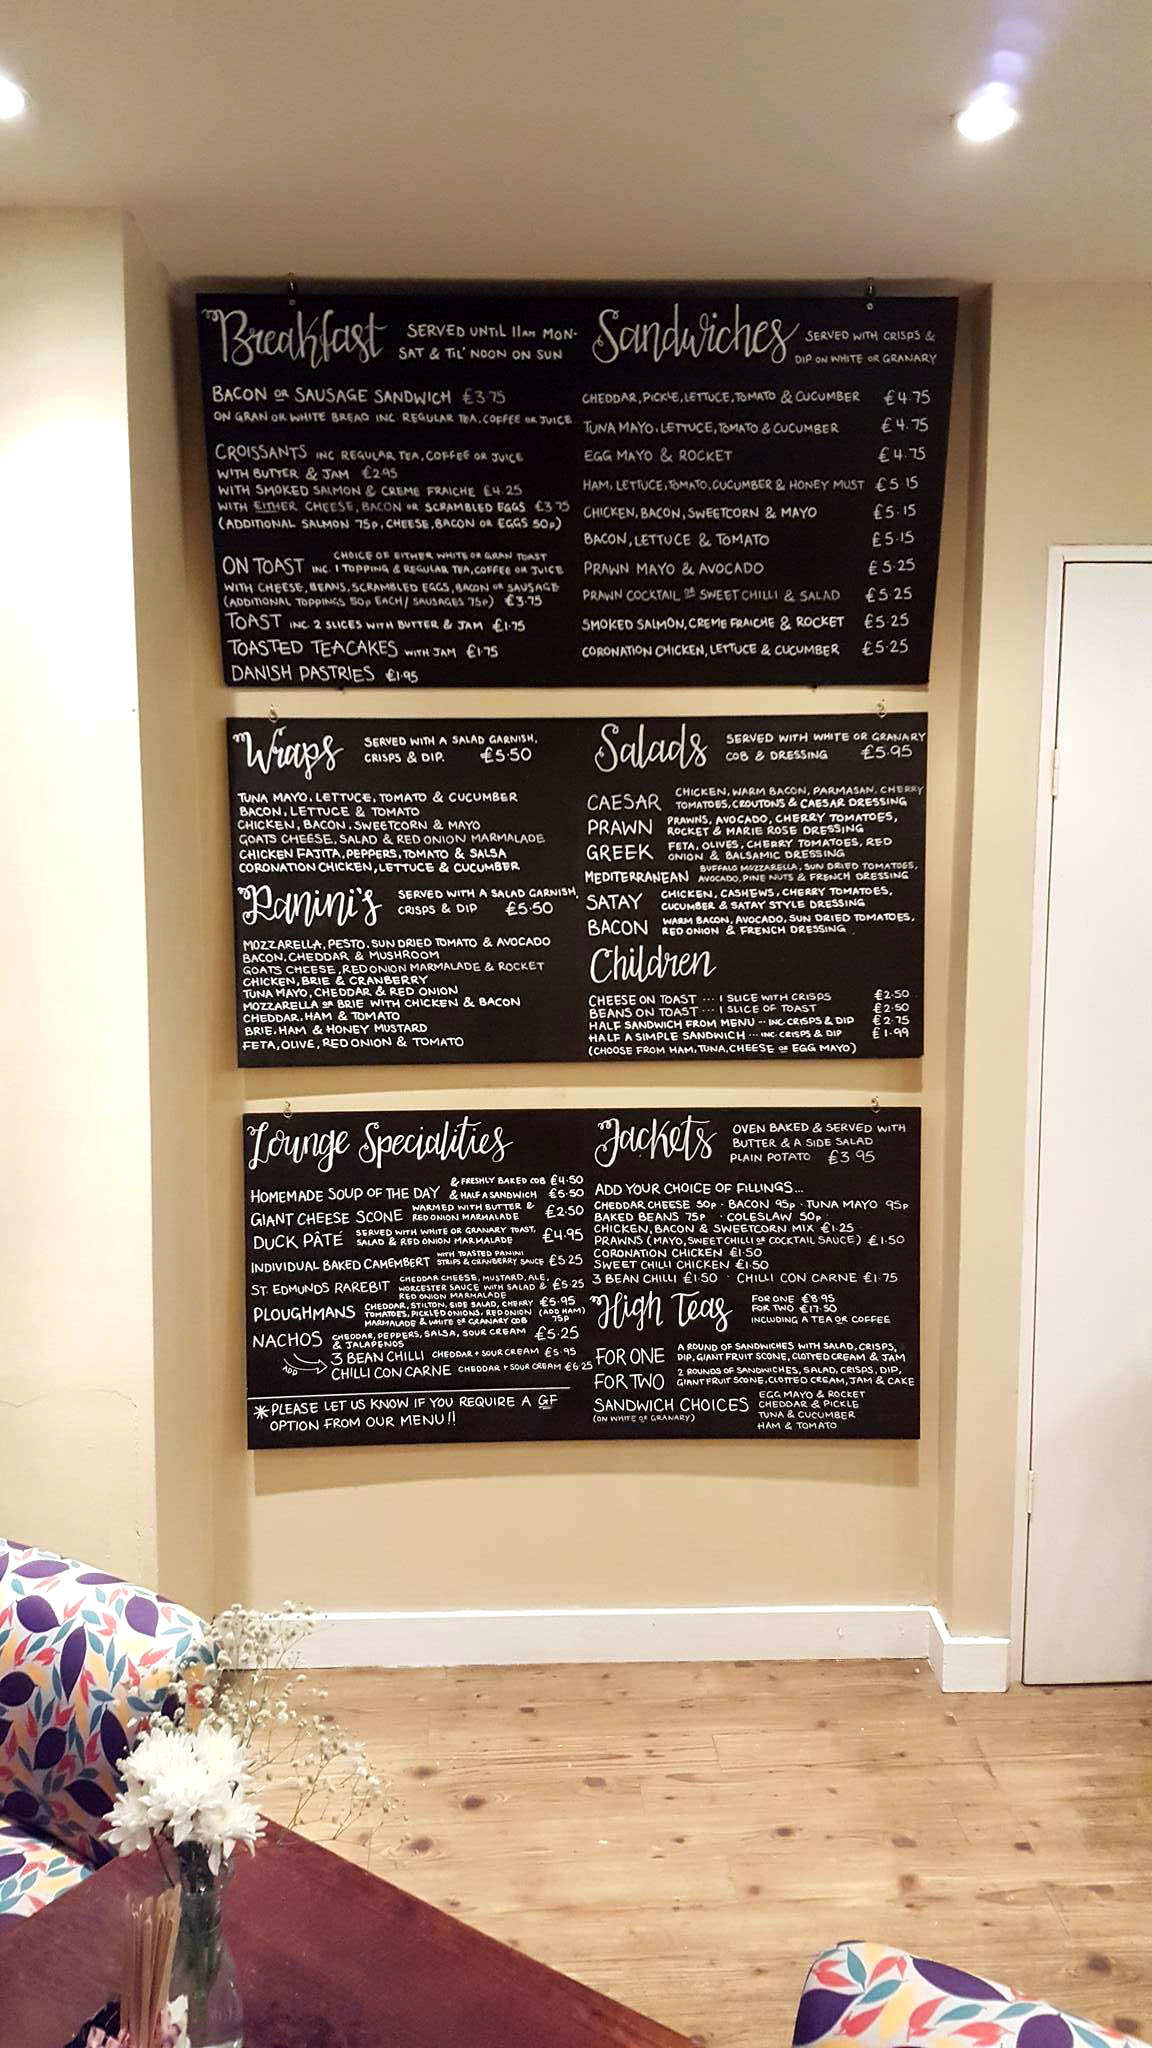 Breakfast SERVED UNTIL 11am MON-
SAT & TIL' NOON ON SUN
BACON OR SAUSAGE SANDWICH £3.75
ON GRAN OR WHITE BREAD INC REGULAR TEA, COFFEE OR JUICE
CROISSANTS INC REGULAR TEA, COFFEE OR JUICE
WITH BUTTER & JAM £2.95
WITH SMOKED SALMON & CREME FRAICHE £4.25
WITH EITHER CHEESE, BACON OR SCRAMBLED EGGS £3.75
(ADDITIONAL SALMON 75p, CHEESE, BACON OR EGGS 50p)
ON TOAST CHOICE OF EITHER WHITE OR GRAN TOAST
INC. 1 TOPPING & REGULAR TEA, COFFEE OR JUICE
WITH CHEESE, BEANS, SCRAMBLED EGGS, BACON OR SAUSAGE
(ADDITIONAL TOPPINGS 50p EACH/ SAUSAGES 75p) £3.75
TOAST INC 2 SLICES WITH BUTTER & JAM £1.75
TOASTED TEACAKES WITH JAM £1.75
DANISH PASTRIES £1.95
Sandwiches SERVED WITH CRISPS &
DIP ON WHITE OR GRANARY
CHEDDAR, PICKLE, LETTUCE, TOMATO & CUCUMBER £4.75
TUNA MAYO, LETTUCE, TOMATO & CUCUMBER £4.75
EGG MAYO & ROCKET £4.75
HAM, LETTUCE, TOMATO, CUCUMBER & HONEY MUST £5.15
CHICKEN, BACON, SWEETCORN & MAYO £5.15
BACON, LETTUCE & TOMATO £5.15
PRAWN MAYO & AVOCADO £5.25
PRAWN COCKTAIL OR SWEET CHILLI & SALAD £5.25
SMOKED SALMON, CREME FRAICHE & ROCKET £5.25
CORONATION CHICKEN, LETTUCE & CUCUMBER £5.25
Wraps SERVED WITH A SALAD GARNISH,
CRISPS & DIP. £5.50
TUNA MAYO, LETTUCE, TOMATO & CUCUMBER
BACON, LETTUCE & TOMATO
CHICKEN, BACON, SWEETCORN & MAYO
GOATS CHEESE, SALAD & RED ONION MARMALADE
CHICKEN FAJITA, PEPPERS, TOMATO & SALSA
CORONATION CHICKEN, LETTUCE & CUCUMBER
Panini's SERVED WITH A SALAD GARNISH,
CRISPS & DIP £5.50
MOZZARELLA, PESTO, SUN DRIED TOMATO & AVOCADO
BACON, CHEDDAR & MUSHROOM
GOATS CHEESE, RED ONION MARMALADE & ROCKET
CHICKEN, BRIE & CRANBERRY
TUNA MAYO, CHEDDAR & RED ONION
MOZZARELLA OR BRIE WITH CHICKEN & BACON
CHEDDAR, HAM & TOMATO
BRIE, HAM & HONEY MUSTARD
FETA, OLIVE, RED ONION & TOMATO
Salads SERVED WITH WHITE OR GRANARY
COB & DRESSING £5.95
CAESAR CHICKEN, WARM BACON, PARMASAN, CHERRY
TOMATOES, CROUTONS & CAESAR DRESSING
PRAWN PRAWNS, AVOCADO, CHERRY TOMATOES,
ROCKET & MARIE ROSE DRESSING
GREEK FETA, OLIVES, CHERRY TOMATOES, RED
ONION & BALSAMIC DRESSING
MEDITERRANEAN BUFFALO MOZZARELLA, SUN DRIED TOMATOES,
AVOCADO, PINE NUTS & FRENCH DRESSING
SATAY CHICKEN, CASHEWS, CHERRY TOMATOES,
CUCUMBER & SATAY STYLE DRESSING
BACON WARM BACON, AVOCADO, SUN DRIED TOMATOES,
RED ONION & FRENCH DRESSING
Children
CHEESE ON TOAST ... 1 SLICE WITH CRISPS £2.50
BEANS ON TOAST ... 1 SLICE OF TOAST £2.50
HALF SANDWICH FROM MENU -- INC. CRISPS & DIP £2.75
HALF A SIMPLE SANDWICH ... INC. CRISPS & DIP £1.99
(CHOOSE FROM HAM, TUNA, CHEESE OR EGG MAYO)
Lounge Specialities
HOMEMADE SOUP OF THE DAY & FRESHLY BAKED COB £4.50
& HALF A SANDWICH £5.50
GIANT CHEESE SCONE WARMED WITH BUTTER &
RED ONION MARMALADE £2.50
DUCK PÂTÉ SERVED WITH WHITE OR GRANARY TOAST,
SALAD & RED ONION MARMALADE £4.95
INDIVIDUAL BAKED CAMEMBERT WITH TOASTED PANINI
STRIPS & CRANBERRY SAUCE £5.25
ST. EDMUNDS RAREBIT CHEDDAR CHEESE, MUSTARD, ALE,
WORCESTER SAUCE WITH SALAD & £5.25
RED ONION MARMALADE
PLOUGHMANS CHEDDAR, STILTON, SIDE SALAD, CHERRY £5.95
TOMATOES, PICKLED ONIONS, RED ONION (ADD HAM)
MARMALADE & WHITE OR GRANARY COB 75p
NACHOS CHEDDAR, PEPPERS, SALSA, SOUR CREAM £5.25
& JALAPENOS
ADD 3 BEAN CHILLI CHEDDAR + SOUR CREAM £5.95
CHILLI CON CARNE CHEDDAR + SOUR CREAM £6.25
*PLEASE LET US KNOW IF YOU REQUIRE A GF
OPTION FROM OUR MENU!!
Jackets OVEN BAKED & SERVED WITH
BUTTER & A SIDE SALAD
PLAIN POTATO £3.95
ADD YOUR CHOICE OF FILLINGS...
CHEDDAR CHEESE 50p · BACON 95p · TUNA MAYO 95p
BAKED BEANS 75p · COLESLAW 50p ·
CHICKEN, BACON & SWEETCORN MIX £1.25
PRAWNS (MAYO, SWEET CHILLI OR COCKTAIL SAUCE) £1.50
CORONATION CHICKEN £1.50
SWEET CHILLI CHICKEN £1.50
3 BEAN CHILLI £1.50 · CHILLI CON CARNE £1.75
High Teas FOR ONE £8.95
FOR TWO £17.50
INCLUDING A TEA OR COFFEE
FOR ONE A ROUND OF SANDWICHES WITH SALAD, CRISPS,
DIP, GIANT FRUIT SCONE, CLOTTED CREAM & JAM
FOR TWO 2 ROUNDS OF SANDWICHES, SALAD, CRISPS, DIP,
GIANT FRUIT SCONE, CLOTTED CREAM, JAM & CAKE
SANDWICH CHOICES EGG MAYO & ROCKET
(ON WHITE OR GRANARY) CHEDDAR & PICKLE
TUNA & CUCUMBER
HAM & TOMATO